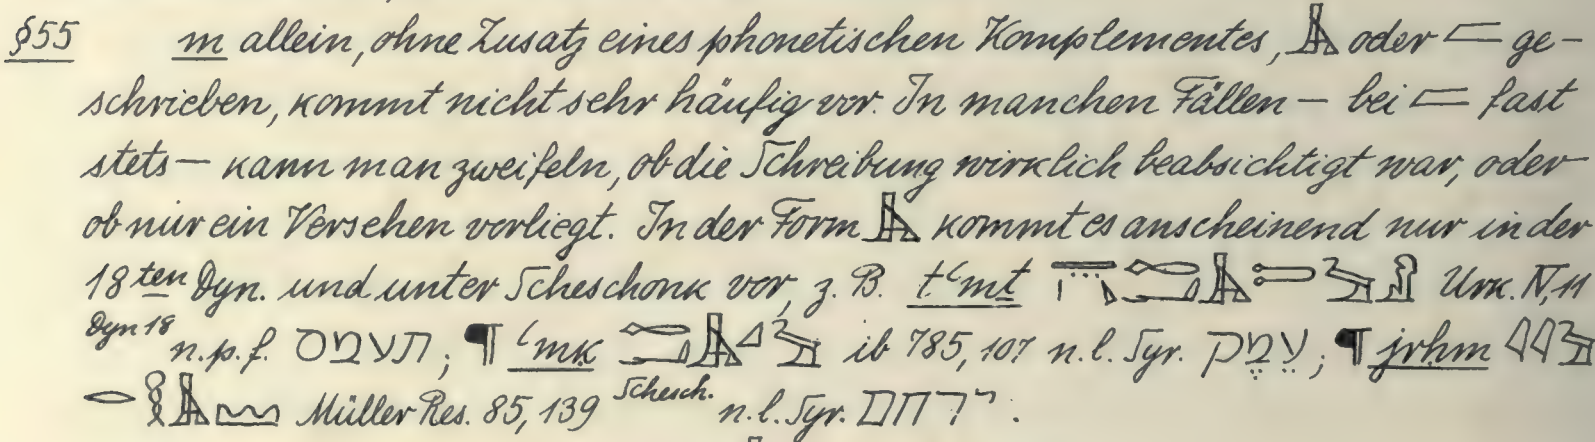 §55 m allein, ohne Zusatz eines phonetischen Komplementes, oder ge-
schrieben, kommt nicht sehr häufig vor. In manchen Fällen – bei fast
stets – kann man zweifeln, ob die Schreibung wirklich beabsichtigt war, oder
ob nur ein Versehen vorliegt. In der Form kommt es anscheinend nur in der
18ten Dyn. und unter Scheschonk vor, z. B. tʿmt Urk. IV, 11
Dyn 18 n.p.f. תעמס; ¶ ʿmk ib 785, 107 n.l. Syr. עֵמֶק; ¶ jrhm
Müller Res. 85, 139 Schesch. n.l. Syr. ירחם.